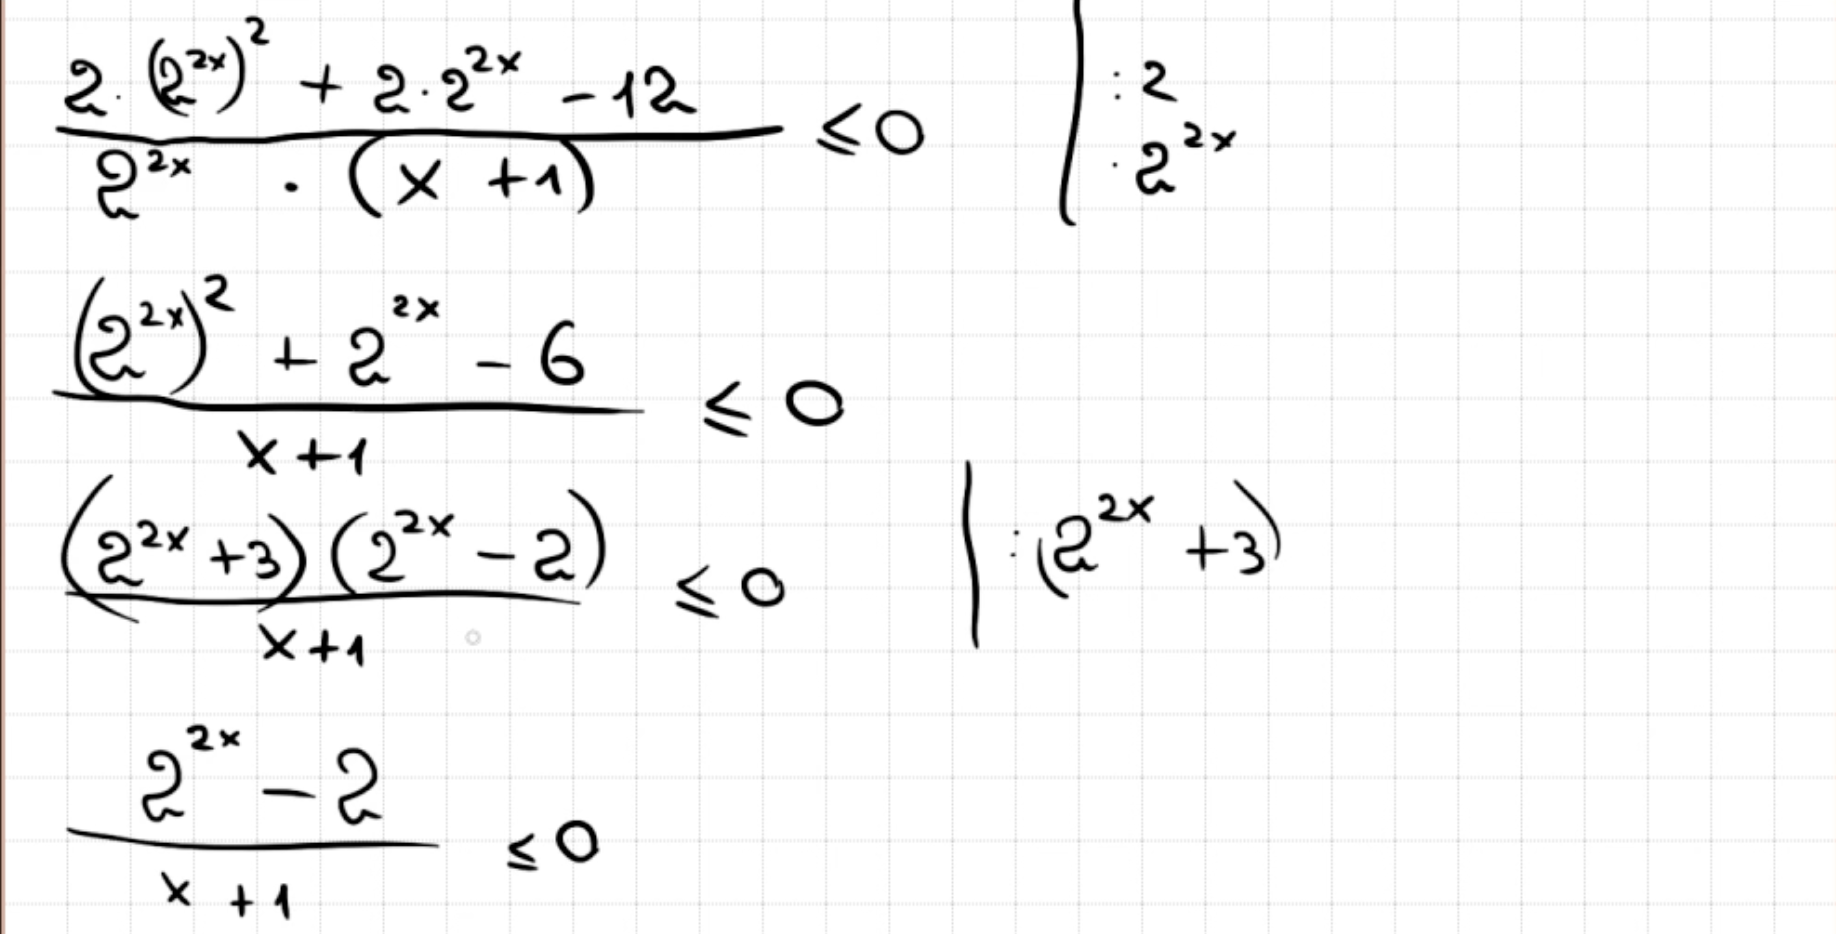 2·(2^{2x})^2 + 2·2^{2x} - 12 / 2^{2x} · (x + 1) ≤ 0 | :2 :2^{2x}
(2^{2x})^2 + 2^{2x} - 6 / x + 1 ≤ 0
(2^{2x} + 3)(2^{2x} - 2) / x + 1 ≤ 0 | :(2^{2x} + 3)
2^{2x} - 2 / x + 1 ≤ 0